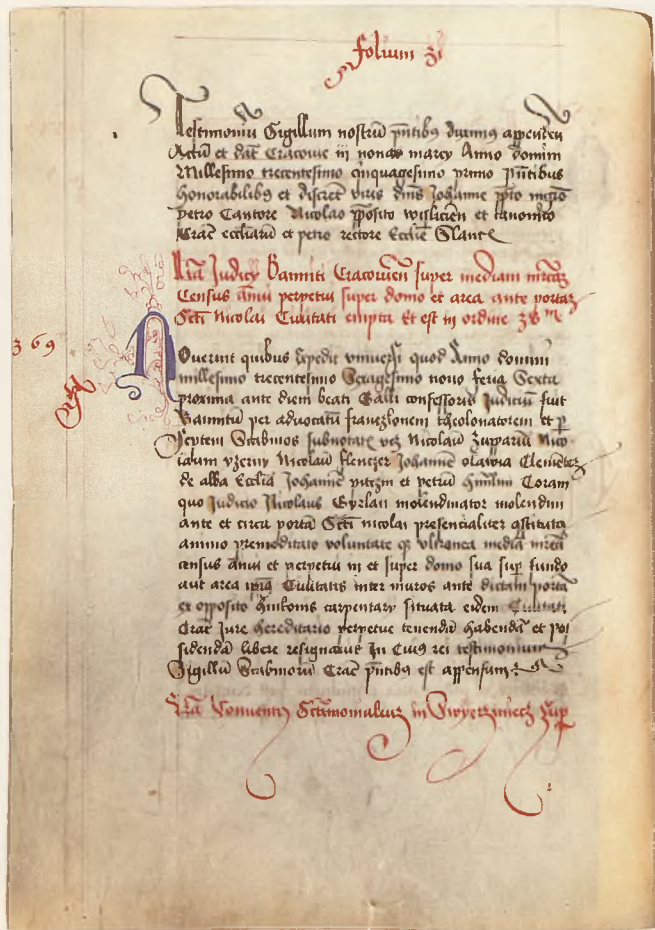 folium 31
Testimoniu Sigillum nostru pntibus duximus appenden
Actu et dat Cracovie iii nonas marcy Anno domini
Millesimo trecentesimo qinquagesimo primo pntibus
honorabilibus et discret viris dnis Johanne ppto
petro Cantore Nicolao pposito wislicien et canonico
Crac eccliaru et petro rectore Ecclie
Lra Judicy Banniti Cracovien super mediam mrcam
Census annui perpetui super domo et area ante portam
Scti Nicolai Civitati empta Et est in ordine
369
Noverint quibus expedit universi quod Anno domini
millesimo trecentesimo Sexagesimo nono feria Sexta
proxima ante diem beati Galli confessoris Judiciu fuit
Bannitu per advocatu franczkonem theolonatorem et p
Septem Scabinos subnotatos vcz Nicolau Zuppariu Nico
laum Nicolau Johanne Clemete
de alba Ecclia Johanne et petru Coram
quo Judicio Nicolaus Gyrlan molendinator molendini
ante et circa porta Scti nicolai presencialiter gstitutus
animo premeditato voluntate qz ultronea media mrca
census anui et perpetui in et super domo sua sup fundo
aut area ipius Civitatis inter muros ante dictam porta
ex opposito carpentary situata eidem Civitati
Crac Jure hereditario perpetue tenenda habenda et pos
sidenda libere resignavit In Cuius rei testimonium
Sigillu Scabinoru Crac pntibus est appensum
Lra Conventus Sctimonialium in Swyerzinecz sup